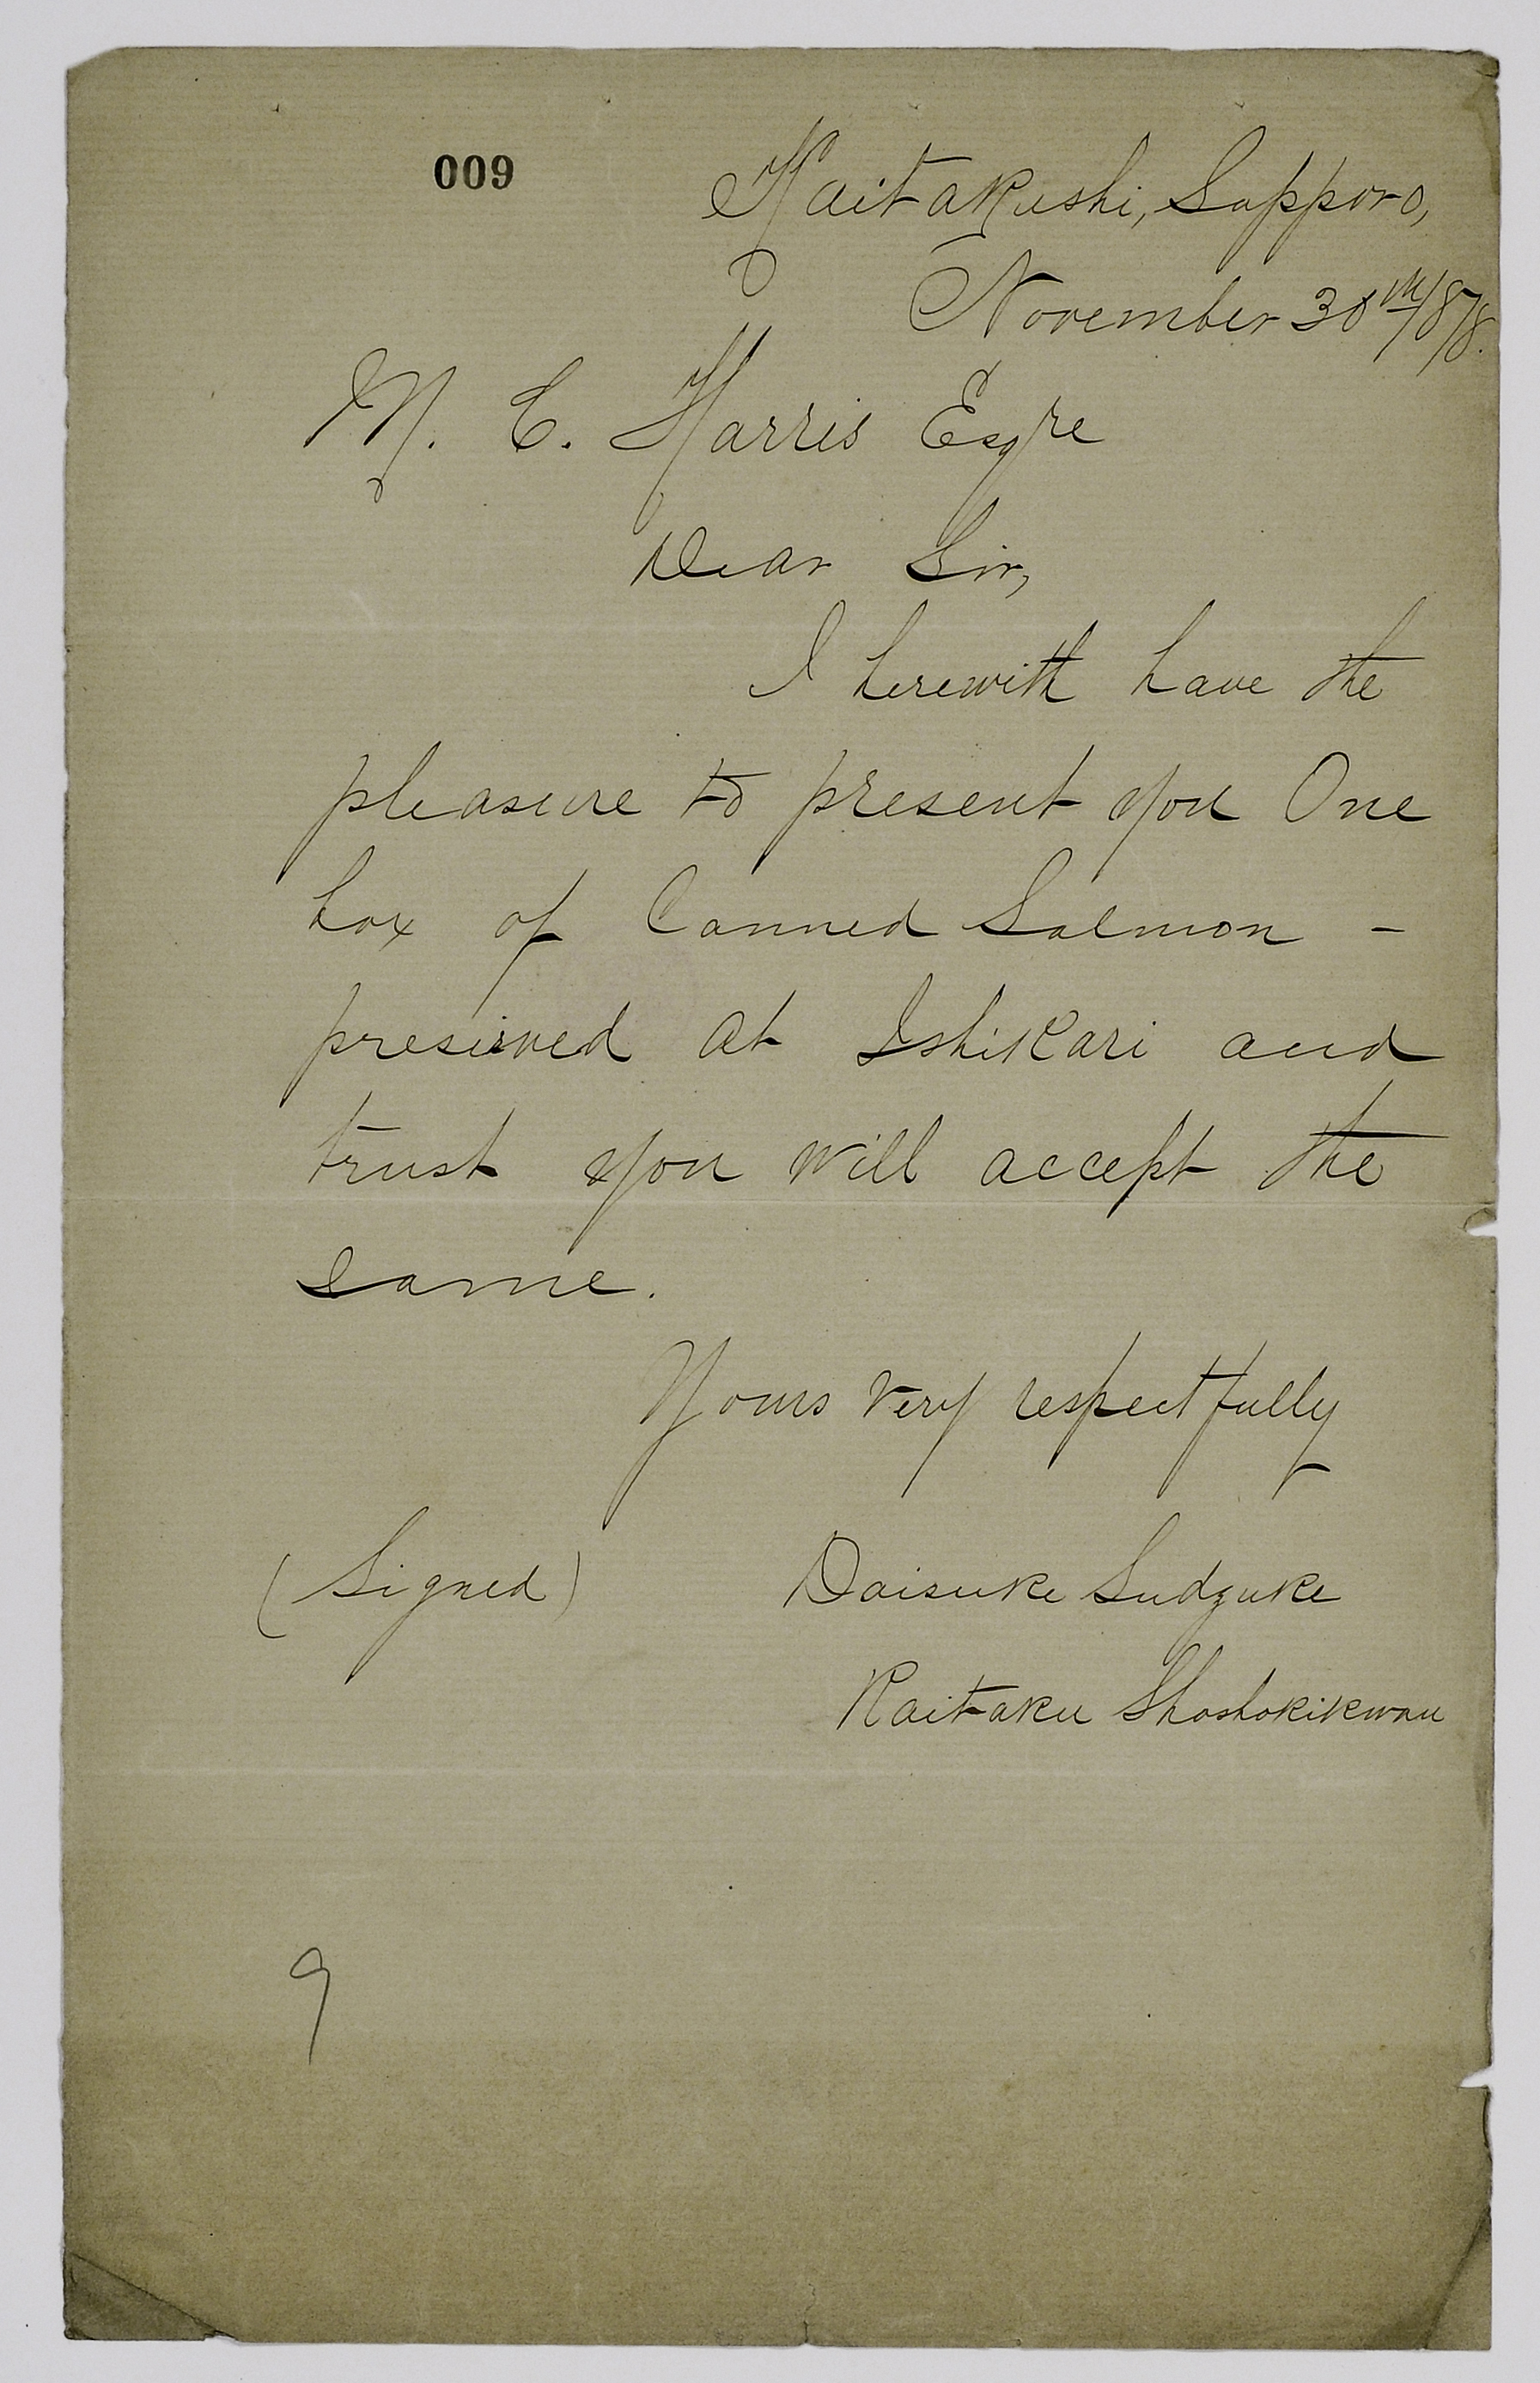 009
Kaitakushi, Sapporo,
November 30th/878.
M. C. Harris Esqre
Dear Sir,
I herewith have the
pleasure to present you One
box of Canned Salmon -
preserved at Ishikari and
trust you will accept the
same.
Yours very respectfully
(Signed) Daisuke Sudzuke
Kaitaku Shoshokikwan
9